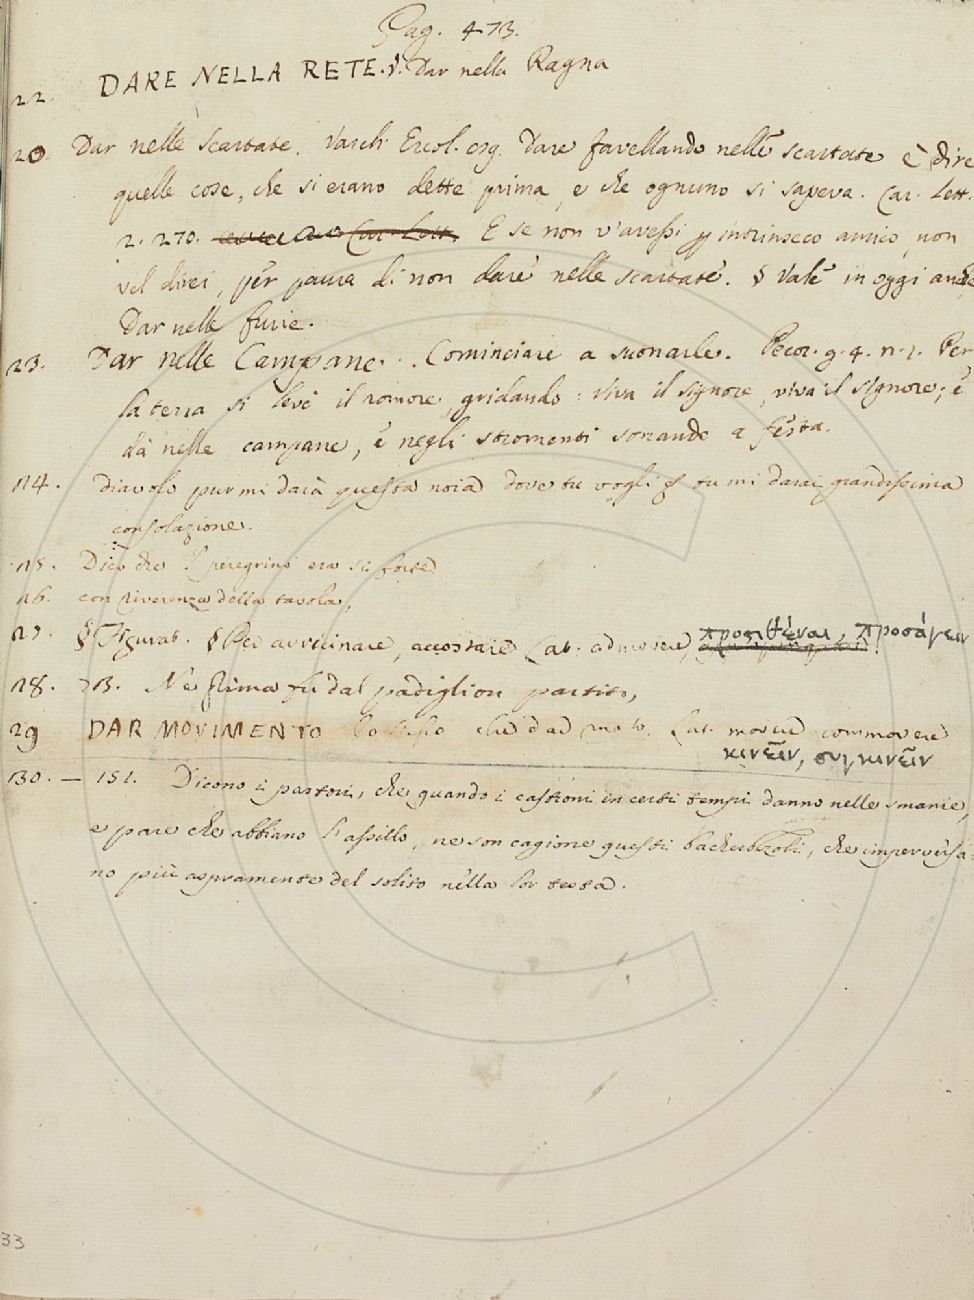 Pag. 473.
22. DARE NELLA RETE. v. Dar nella Ragna
20. Dar nelle scartate. Varch. Ercol. Dare favellando nelle scartate è dire
quelle cose, che si erano dette prima, e che ognuno si sapeva. Car. Lett.
2. 270. Car. Lett. E se non v'avessi p intrinseco amico, non
vel direi, per paura di non dare nelle scartate. § Vale in oggi anche
Dar nelle furie.
23. Dar nelle Campane. Cominciare a suonarle. Pecor. g. 4. n. 1. Per
la terra si levò il romore, gridando: viva il signore, viva il signore; e
dà nelle campane, e negli stromenti sonando a festa.
124. diavolo pur mi darà questa noia dove tu vogli tu mi darai grandissima
consolazione.
125. Dico che 'l peregrino era sì forte
126. con riverenza della tavola,
127. § Figurat. § Per avvicinare, accostare Lat. admovere, προσιθέναι, προσάγειν
128. 73. Ne prima fu dal padiglion partito,
29 DAR MOVIMENTO lo stesso che dar moto. Lat. movere commovere
κινεῖν, συγκινεῖν
130. — 151. Dicono i pastori, che quando i castroni in certi tempi danno nelle smanie,
e pare che abbiano l'assillo, ne son cagione questi bacherozzoli, che imperversa-
no più aspramente del solito nella lor testa.
33